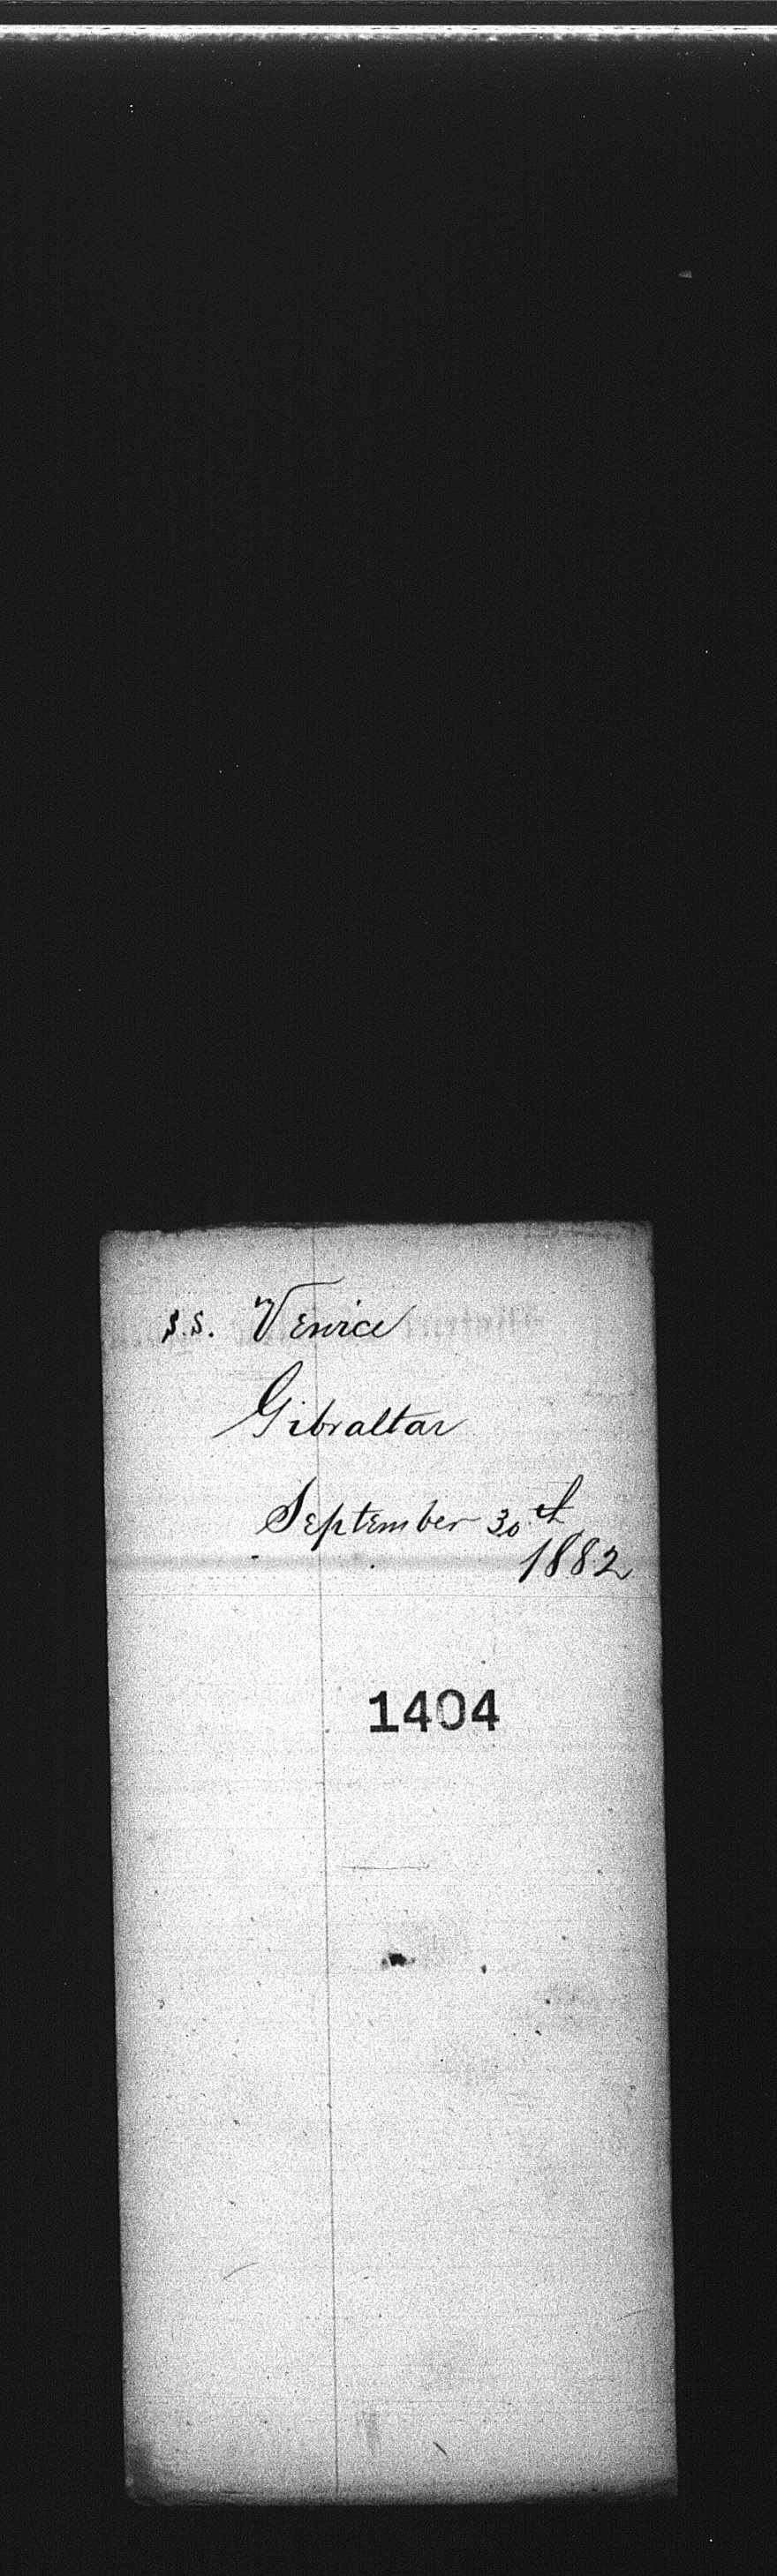 S.S. Venice
Gibraltar
September 30th
1882
1404